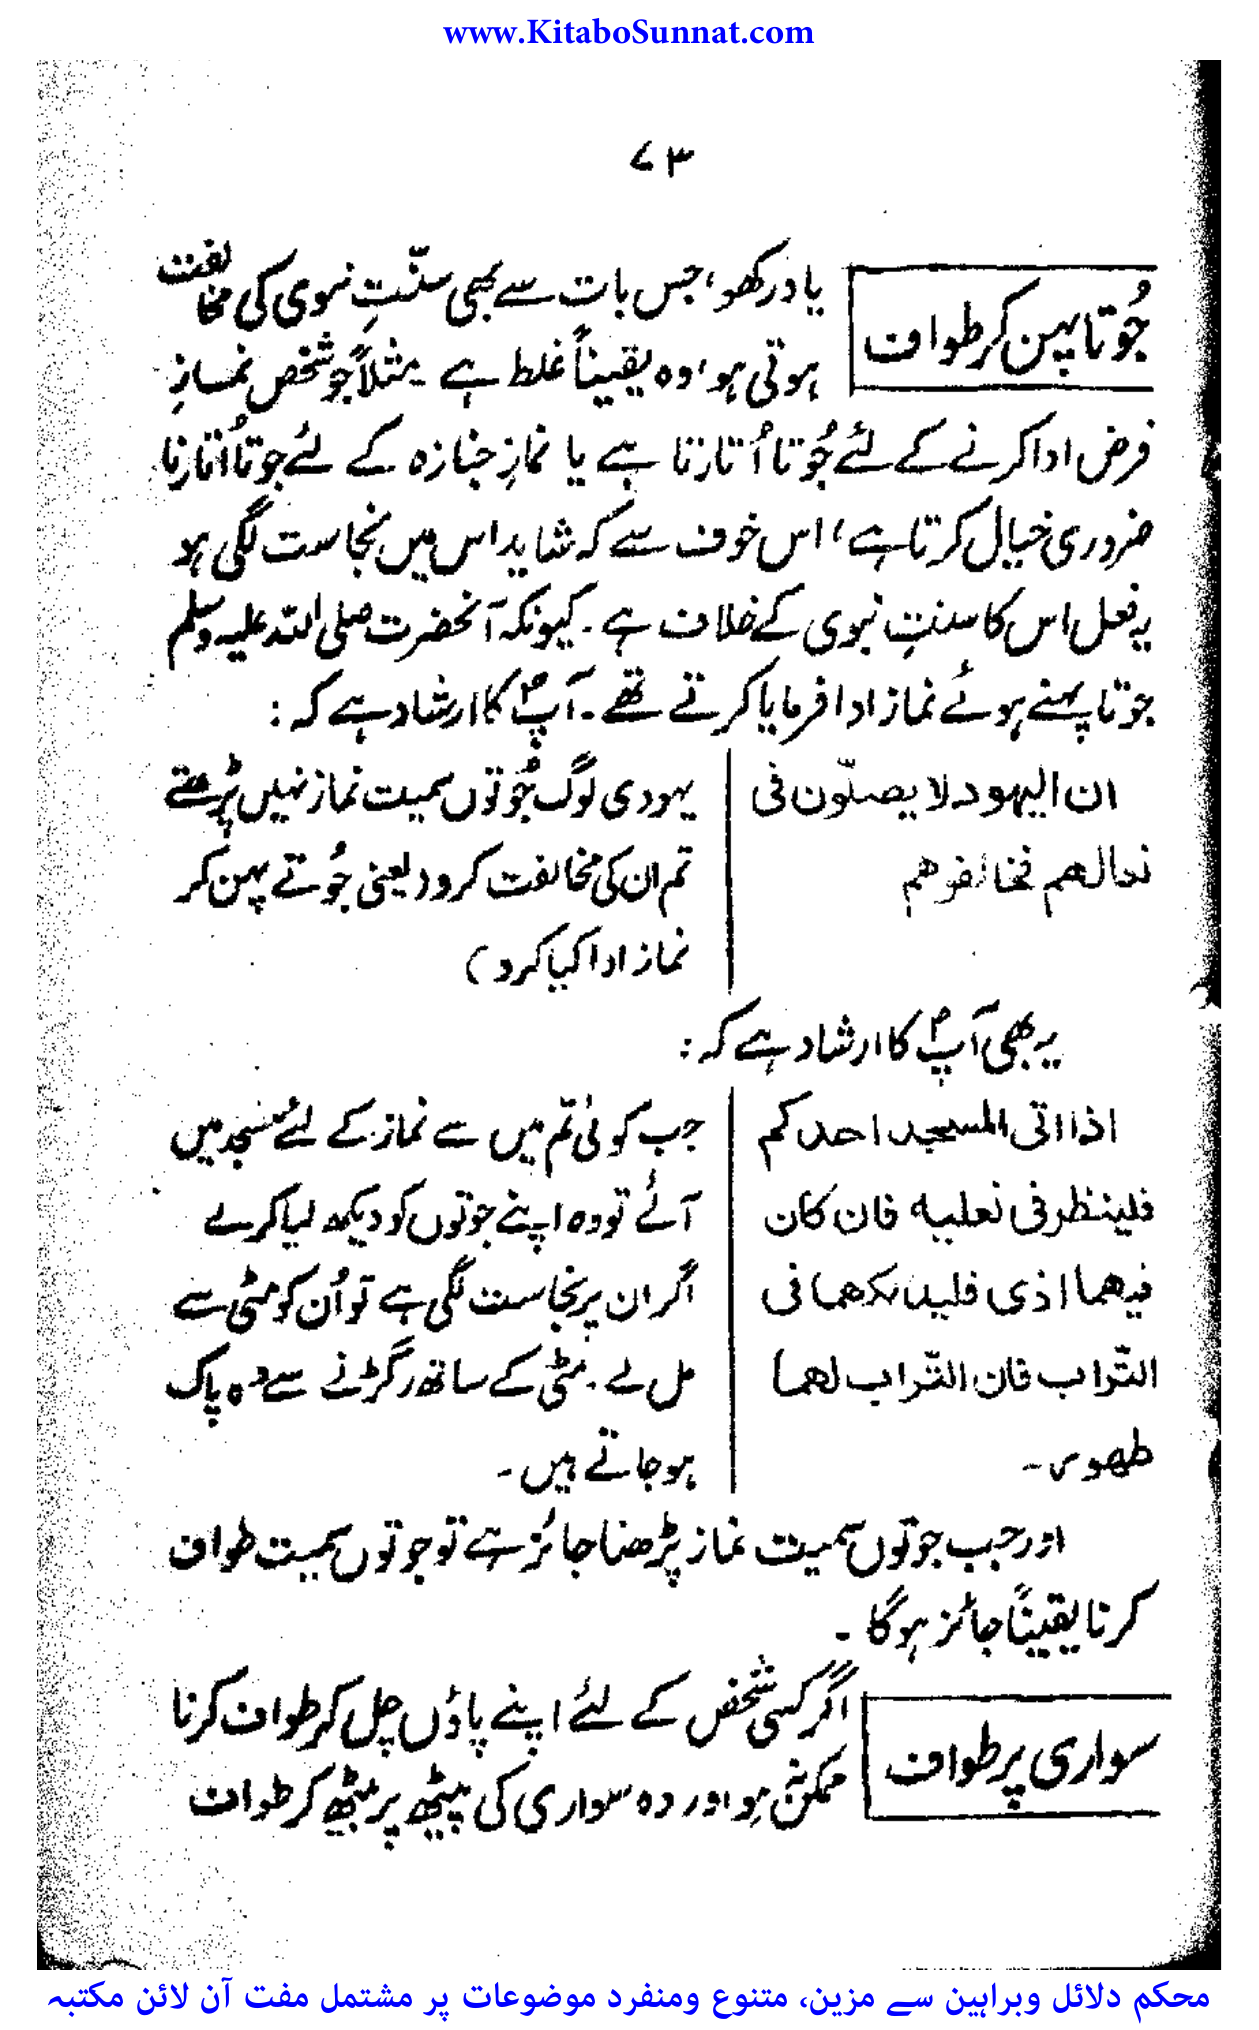 www.KitaboSunnat.com
۷۳
جُوتا پہن کر طواف
یاد رکھو، جس بات سے بھی سنّتِ نبوی کی مخالفت
ہوتی ہو، وہ یقیناً غلط ہے ۔ مثلاً جو شخص نمازِ
فرض ادا کرنے کے لئے جُوتا اُتارتا ہے یا نمازِ جنازہ کے لئے جوتا اُتارنا
ضروری خیال کرتا ہے، اس خوف سے کہ شاید اس میں نجاست لگی ہو
یہ فعل اس کا سنتِ نبوی کے خلاف ہے ۔ کیونکہ آنحضرت صلی اللہ علیہ وسلم
جوتا پہنے ہوئے نماز ادا فرمایا کرتے تھے ۔ آپؐ کا ارشاد ہے کہ :
ان الیہود لا یصلّون فی
نعالھم فخالفوھم
یہودی لوگ جُوتوں سمیت نماز نہیں پڑھتے
تم ان کی مخالفت کرو (یعنی جُوتے پہن کر
نماز ادا کیا کرو)
یہ بھی آپؐ کا ارشاد ہے کہ :
اذا اتی المسجد احدکم
فلینظر فی نعلیہ فان کان
فیھما اذی فلیدلکھما فی
التّراب فان التّراب لھما
طھور ۔
جب کوئی تم میں سے نماز کے لئے مسجد میں
آئے تو وہ اپنے جوتوں کو دیکھ لیا کرے
اگر ان پر نجاست لگی ہے تو اُن کو مٹی سے
مل لے ۔ مٹی کے ساتھ رگڑنے سے وہ پاک
ہو جاتے ہیں ۔
اور جب جوتوں سمیت نماز پڑھنا جائز ہے تو جوتوں سمیت طواف
کرنا یقیناً جائز ہوگا ۔
سواری پر طواف
اگر کسی شخص کے لئے اپنے پاؤں چل کر طواف کرنا
ممکن نہ ہو اور وہ سواری کی پیٹھ پر بیٹھ کر طواف
محکم دلائل وبراہین سے مزین، متنوع ومنفرد موضوعات پر مشتمل مفت آن لائن مکتبہ